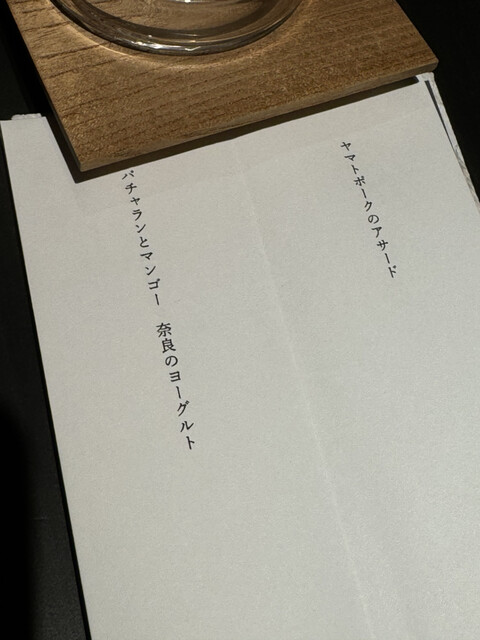 ヤマトポークのアサード
パチャランとマンゴー　奈良のヨーグルト